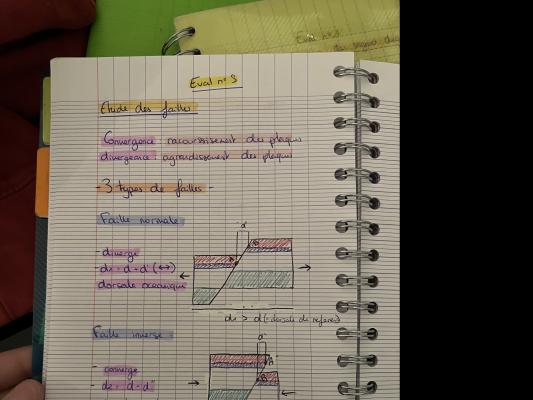 Eval n° 3
Etude des failles
Convergence : raccourcissement des plaques
divergence : agrandissement des plaques
- 3 types de failles -
Faille normale
d'
- diverge
- d2 = d + d' (↔)
dorsale océanique
d2 > d
Faille inverse
d'
- converge
- d2 = d - d'